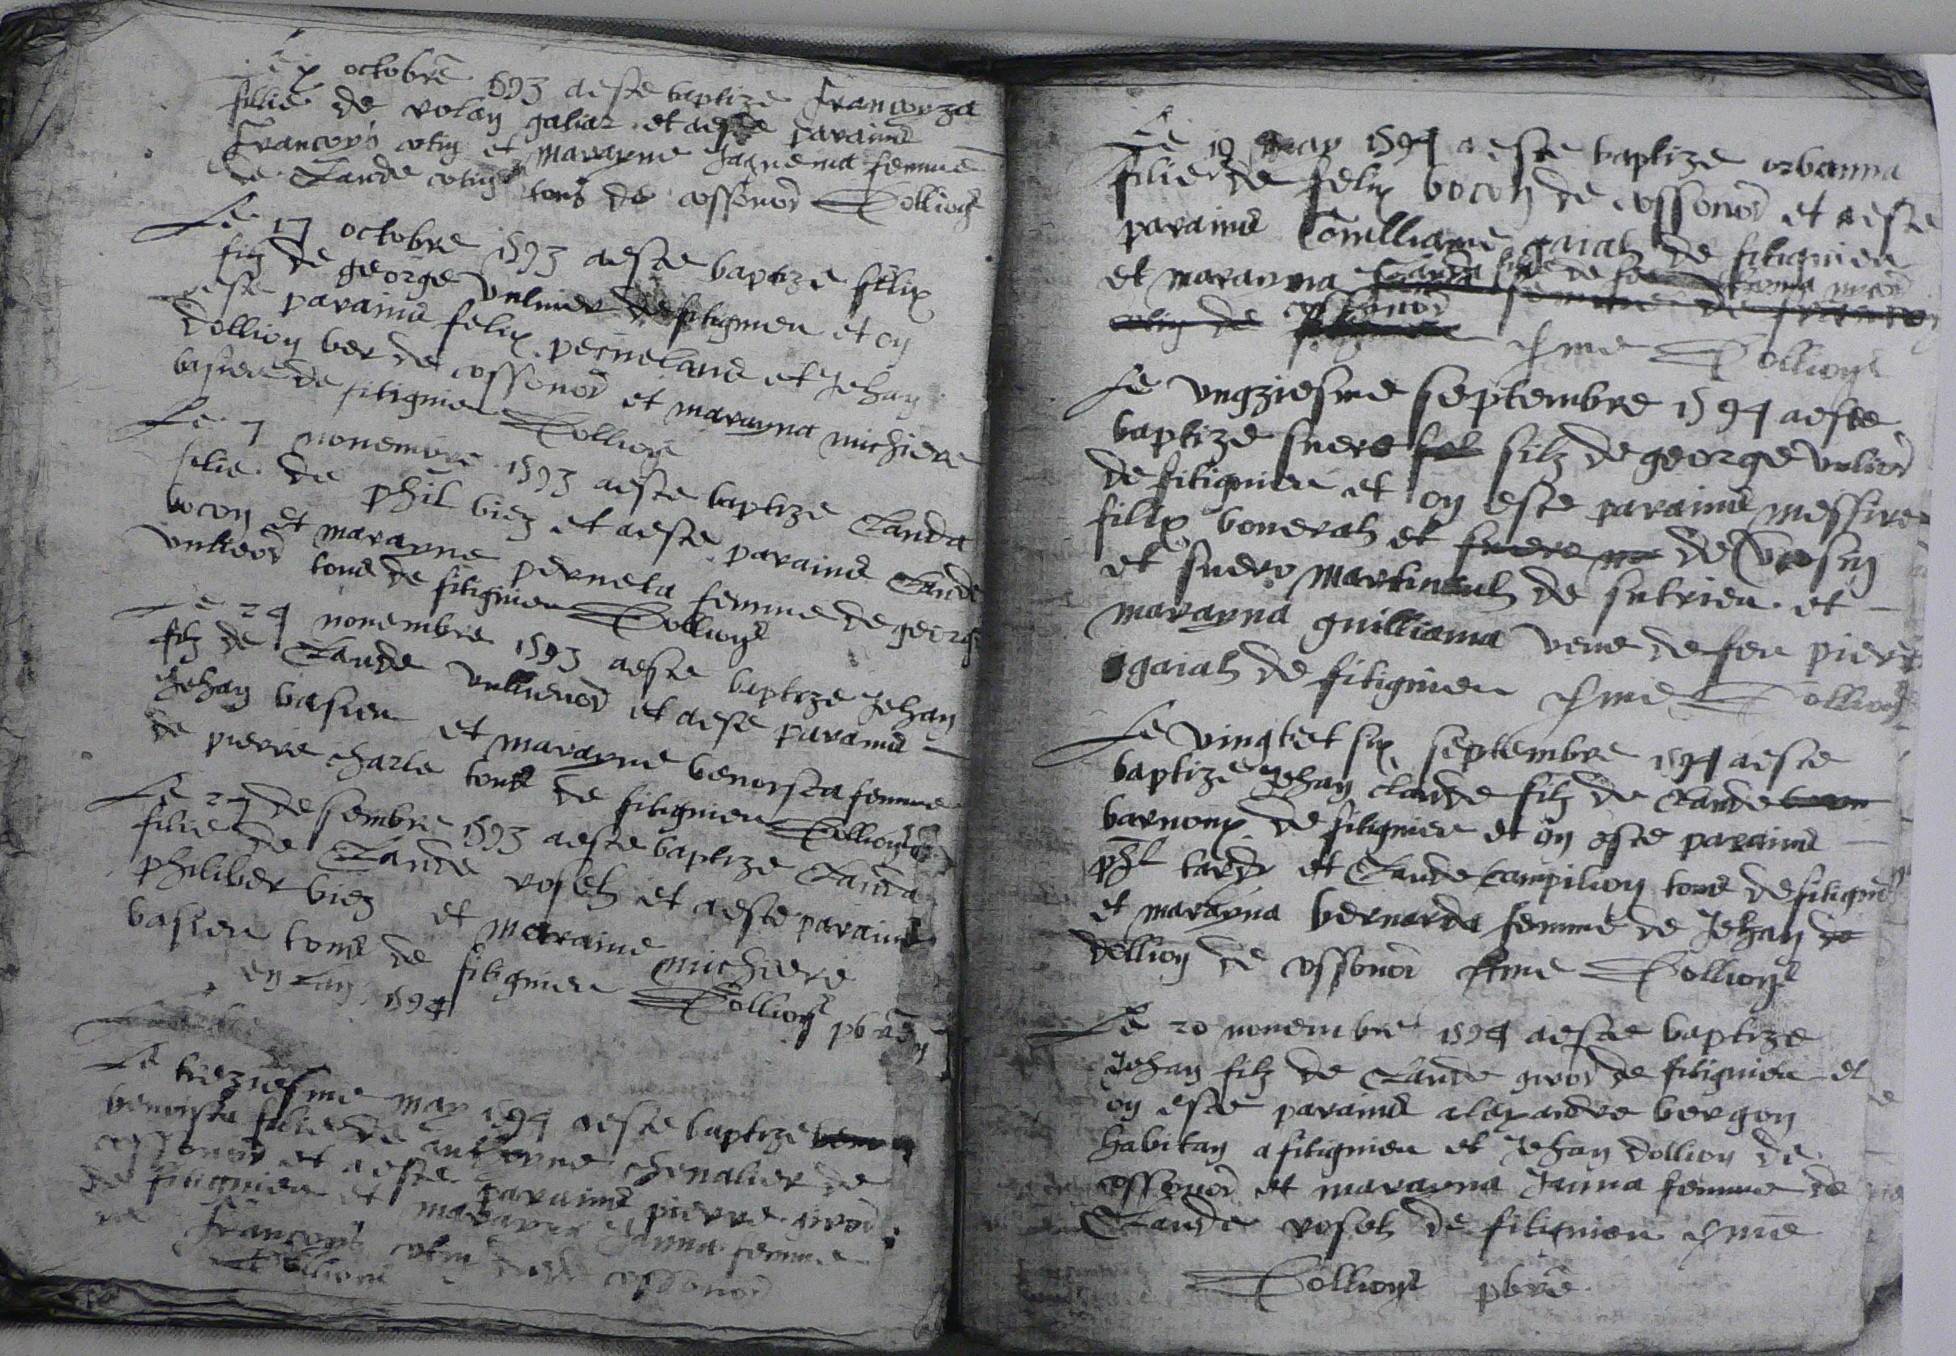 Le x octobre 1593 aeste baptize Francoyza
fillie de rolan galiar et aeste paraine
Francoys cotin et marayne Jaquema femme
de Claude cotin tous de ossonod Dollions
Le 17 octobre 1593 aeste baptize fillix
filz de george vulliod de fitignieu et on
este parains felix perneland et Jehan
dollion ber de ossonod et marayna michiere
basiere de fitignieu Dollions
Le 7 novembre 1593 aeste baptize Clauda
filie de phil biez et aeste parains Claude
bocon et marayne perneta femme de george
vulliod tous de fitignieu Dollions
Le 24 novembre 1593 aeste baptize Jehan
filz de Claude vulliod et aeste parains
Jehan basieu et marayne benoista femme
de pierre charle tous de fitignieu Dollions
Le 27 desembre 1593 aeste baptize Clauda
filie de Claude roseth et aeste parains
philiber biez et maraine michiere
basieu tous de fitignieu Dollions pbre
en lan 1594
Le treziesme may 1594 aeste baptize
benoista filie de anthoyne chenalier de
ossonod et aeste parains pierre givod
de fitignieu et marayne Janna femme
de francoys cotin ossonod
Dollions
Le 19 may 1594 aeste baptize urbanna
filie de felix bocon de ossonod et aeste
parains Guilliame gaiah de fitignieu
et marayna
ossonod Ame Dollions
Le ungziesme septembre 1594 aeste
baptize suere filz de george vuliod
de fitignieu et on este parains messire
fillix bonerah et de Viosin
et suero martinauh de sutrieu et
marayna guilliama veve de feu pierre
gaiah de fitignieu Ame Dollions
Le vingtet six septembre 1594 aeste
baptize Jehan claude filz de Claude
barnoux de fitignieu et on este parains
phl tardy et Claude campilion tous de fitignieu
et marayna bernarda femme de Jehan
dollion de ossonod Ame Dollions
Le 20 novembre 1594 aeste baptize
Jehan filz de Claude givod de fitignieu et
on este parains alexandre bergon
habitan a fitignieu et Jehan dollion de
ossonod et marayna Janna femme de
Claude roseth de fitignieu Ame
Dollions pbre